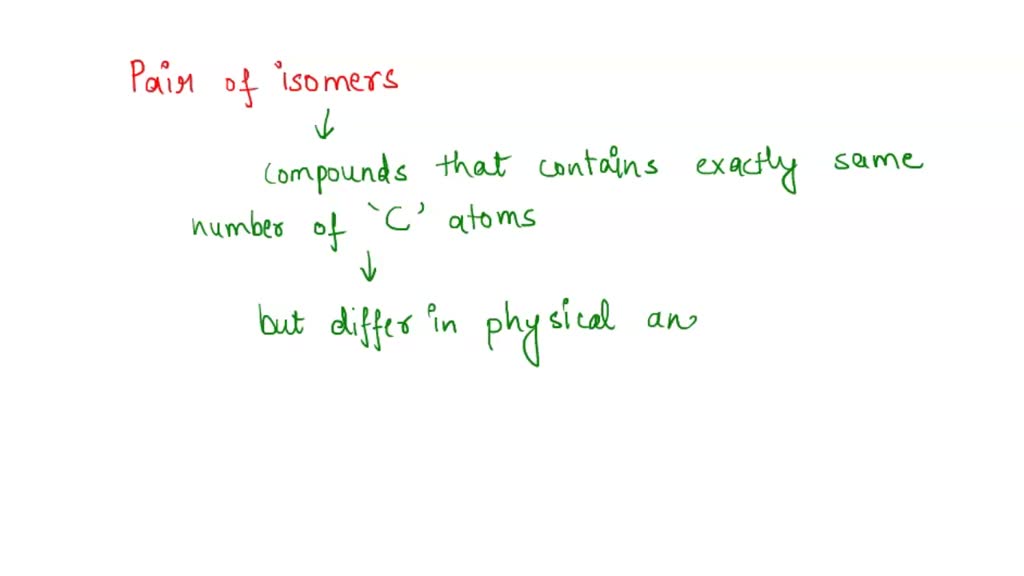 Pair of isomers
↓
compounds that contains exactly same
number of 'C' atoms
↓
but differ in physical an